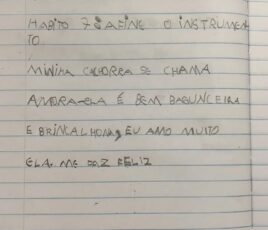 HABITO 7 : AFINE O INSTRUMEN
TO.
MINHA CACHORRA SE CHAMA
É BEM BAGUNCEIRA
E BRINCALHONA, EU AMO MUITO
ELA. ME FAZ FELIZ